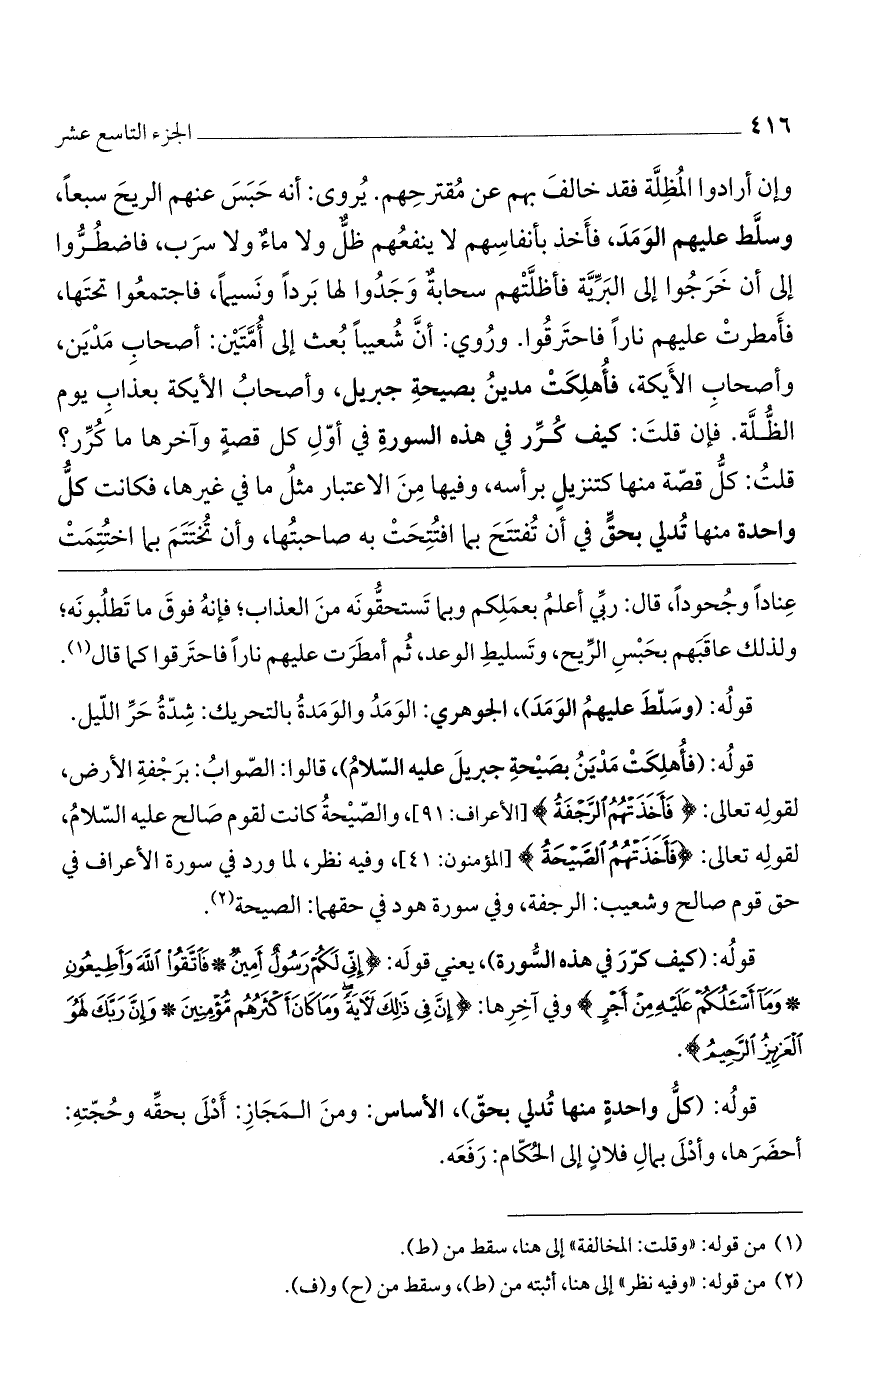 ٤١٦ ــــــــــــــــــــــــــــــــــــــــ الجزء التاسع عشر
وإن أرادوا المُظِلَّة فقد خالفَ بهم عن مُقترحِهم. يُروى: أنه حَبَسَ عنهم الريحَ سبعاً،
وسلَّط عليهم الوَمَدَ، فأَخذ بأنفاسِهم لا ينفعُهم ظلٌّ ولا ماءٌ ولا سرَب، فاضطُرُّوا
إلى أن خَرَجُوا إلى البَرِّيَّة فأظلَّتْهم سحابةٌ وَجَدُوا لها بَرداً ونَسيماً، فاجتمعُوا تحتَها،
فأَمطرتْ عليهم ناراً فاحتَرقُوا. ورُوي: أنَّ شُعيباً بُعث إلى أُمَّتَيْن: أصحابِ مَدْيَن،
وأصحابِ الأَيكة، فأُهلِكَتْ مدينُ بصيحةِ جبريل، وأصحابُ الأيكة بعذابِ يوم
الظُّلَّة. فإن قلتَ: كيف كُرِّر في هذه السورةِ في أوّلِ كل قصةٍ وآخرها ما كُرِّر؟
قلتُ: كلُّ قصّة منها كتنزيلٍ برأسه، وفيها مِنَ الاعتبار مثلُ ما في غيرها، فكانت كلُّ
واحدة منها تُدلي بحقٍّ في أن تُفتتَحَ بما افتُتِحَتْ به صاحبتُها، وأن تُختَتَمَ بما اختُتِمَتْ
عِناداً وجُحوداً، قال: ربِّي أعلمُ بعمَلِكم وبما تَستحقُّونَه منَ العذاب؛ فإنهُ فوقَ ما تَطلُبونَه؛
ولذلك عاقَبَهم بحَبْسِ الرِّيح، وتَسليطِ الوعد، ثُم أمطَرَت عليهم ناراً فاحتَرقوا كما قال(١).
قولُه: (وسَلّطَ عليهمُ الوَمَدَ)، الجوهري: الوَمَدُ والوَمَدةُ بالتحريك: شِدّةُ حَرِّ اللّيل.
قولُه: (فأُهلِكَتْ مَدْيَنُ بصَيْحةِ جبريلَ عليه السّلامُ)، قالوا: الصّوابُ: برَجْفةِ الأرض،
لقولِه تعالى: ﴿ فَأَخَذَتْهُمُ ٱلرَّجْفَةُ ﴾ [الأعراف: ٩١]، والصّيْحةُ كانت لقوم صَالح عليه السّلامُ،
لقولِه تعالى: ﴿فَأَخَذَتْهُمُ ٱلصَّيْحَةُ ﴾ [المؤمنون: ٤١]، وفيه نظر، لما ورد في سورة الأعراف في
حق قوم صالح وشعيب: الرجفة، وفي سورة هود في حقهما: الصيحة(٢).
قولُه: (كيف كرّرَ في هذه السُّورة)، يعني قولَه: ﴿إِنِّي لَكُمْ رَسُولٌ أَمِينٌ * فَاتَّقُوا۟ ٱللَّهَ وَأَطِيعُونِ
* وَمَآ أَسْـَٔلُكُمْ عَلَيْهِ مِنْ أَجْرٍ ﴾ وفي آخِرِها: ﴿ إِنَّ فِى ذَٰلِكَ لَآيَةً ۖ وَمَا كَانَ أَكْثَرُهُم مُّؤْمِنِينَ * وَإِنَّ رَبَّكَ لَهُوَ
ٱلْعَزِيزُ ٱلرَّحِيمُ ﴾.
قولُه: (كلُّ واحدةٍ منها تُدلي بحقّ)، الأساس: ومنَ الـمَجَازِ: أَدْلَى بحقِّه وحُجّتهِ:
أحضَرَها، وأدْلَى بمالِ فلانٍ إلى الحُكّام: رَفَعَه.
(١) من قوله: «وقلت: المخالفة» إلى هنا، سقط من (ط).
(٢) من قوله: «وفيه نظر» إلى هنا، أثبته من (ط)، وسقط من (ح) و(ف).